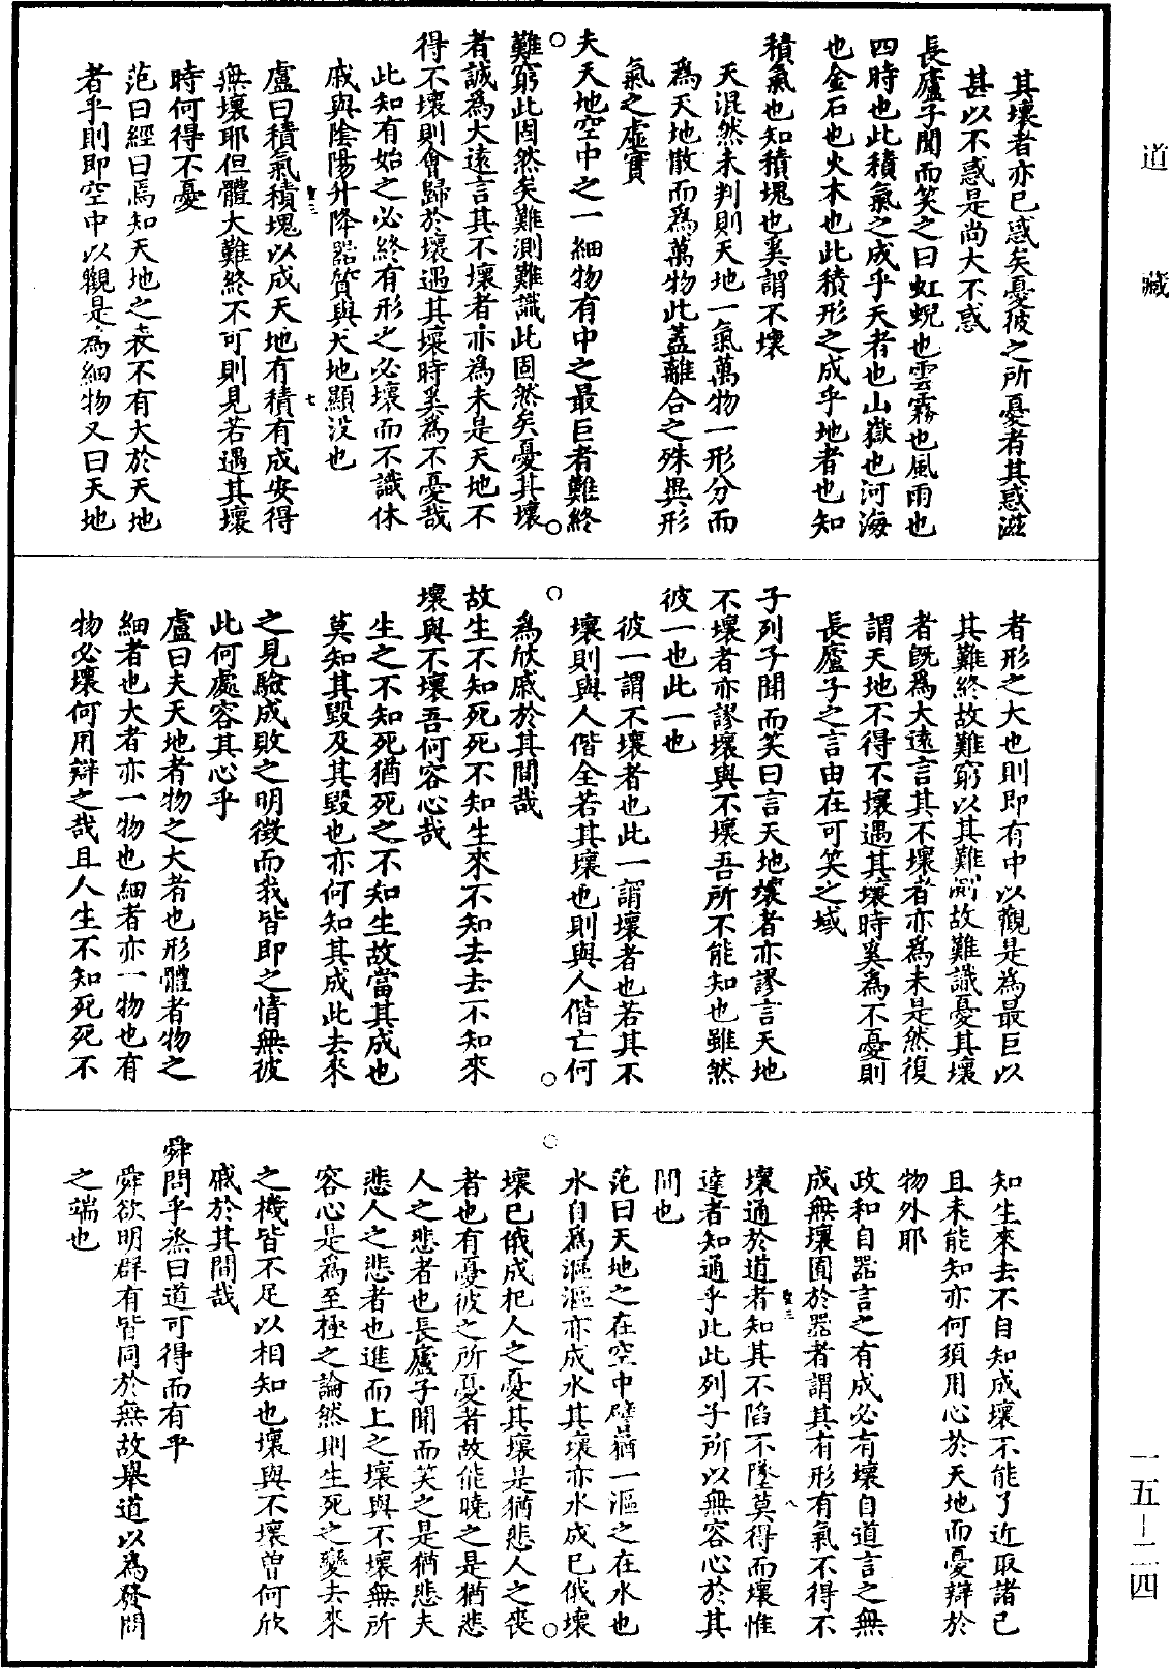 道藏
其壞者亦已惑矣憂彼之所憂者其惑滋
甚以不惑是尚大不惑
長廬子聞而笑之曰虹蜺也雲霧也風雨也
四時也此積氣之成乎天者也山嶽也河海
也金石也火木也此積形之成乎地者也知
積氣也知積塊也奚謂不壞
天混然未判則天地一氣萬物一形分而
為天地散而為萬物此蓋離合之殊異形
氣之虛實
夫天地空中之一細物有中之最巨者難終
難窮此固然矣難測難識此固然矣憂其壞
者誠為大遠言其不壞者亦為未是天地不
得不壞則會歸於壞遇其壞時奚為不憂哉
此知有始之必終有形之必壞而不識休
戚與陰陽升降器質與天地顯没也
盧曰積氣積塊以成天地有積有成安得
無壞耶但體大難終不可則見若遇其壞
時何得不憂
范曰經曰焉知天地之表不有大於天地
者乎則即空中以觀是為細物又曰天地
七
者形之大也則即有中以觀是為最巨以
其難終故難窮以其難測故難識憂其壞
者旣為大遠言其不壞者亦為未是然復
謂天地不得不壞遇其壞時奚為不憂則
長廬子之言由在可笑之域
子列子聞而笑曰言天地壞者亦謬言天地
不壞者亦謬壞與不壞吾所不能知也雖然
彼一也此一也
彼一謂不壞者也此一謂壞者也若其不
壞則與人偕全若其壞也則與人偕亡何
為欣戚於其間哉
故生不知死死不知生來不知去去不知來
壞與不壞吾何容心哉
生之不知死猶死之不知生故當其成也
莫知其毀及其毀也亦何知其成此去來
之見驗成敗之明徵而我皆即之情無彼
此何處容其心乎
盧曰夫天地者物之大者也形體者物之
細者也大者亦一物也細者亦一物也有
物必壞何用辯之哉且人生不知死死不
知生來去不自知成壞不能了近取諸己
且未能知亦何須用心於天地而憂辯於
物外耶
政和自器言之有成必有壞自道言之無
成無壞囿於器者謂其有形有氣不得不
壞通於道者知其不陷不墜莫得而壞惟
達者知通乎此此列子所以無容心於其
間也
八
范曰天地之在空中譬猶一漚之在水也
水自為漚漚亦成水其壞亦水成已俄壞
壞已俄成杞人之憂其壞是猶悲人之喪
者也有憂彼之所憂者故往曉之是猶悲
人之悲者也長廬子聞而笑之是猶悲夫
悲人之悲者也進而上之壞與不壞無所
容心是為至極之論然則生死之變去來
之機皆不足以相知也壞與不壞曾何欣
戚於其間哉
舜問乎烝曰道可得而有乎
舜欲明群有皆同於無故舉道以為發問
之端也
一五-二四